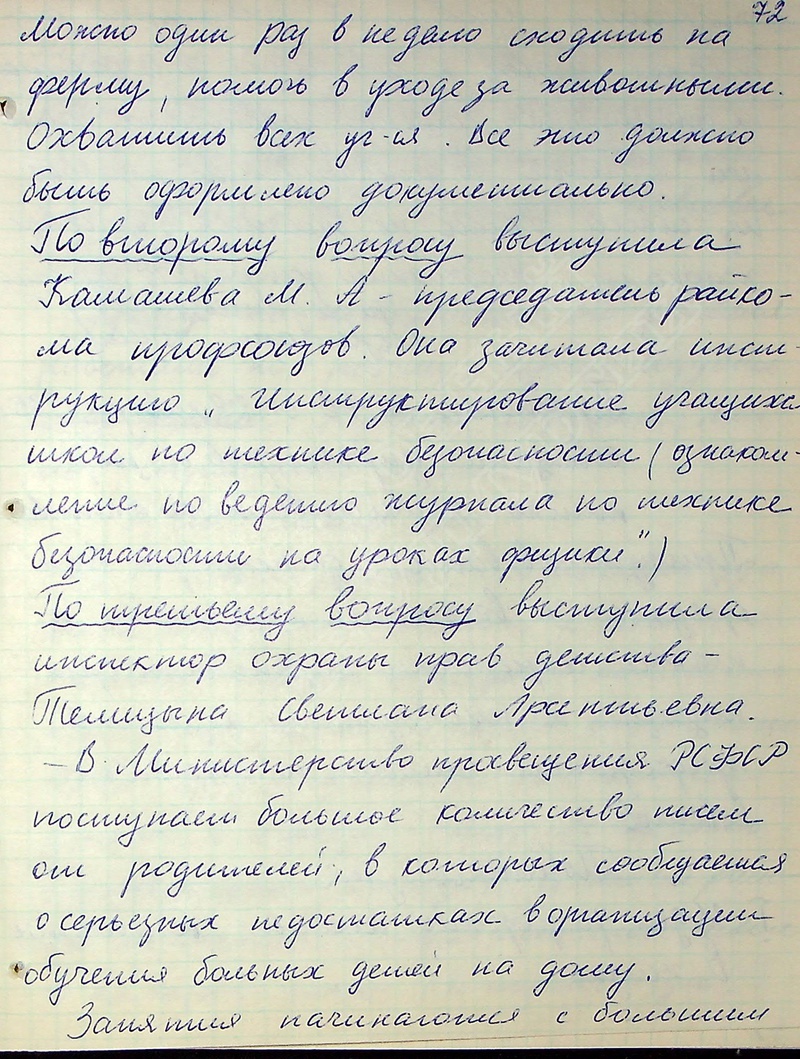 72
Можно один раз в неделю сходить на
ферму, помочь в уходе за животными.
Охватить всех уч-ся. Все это должно
быть оформлено документально.
По второму вопросу выступила
Камашева М. А - председатель райко-
ма профсоюзов. Она зачитала инст-
рукцию „ Инструктирование учащихся
школ по технике безопасности ( ознаком-
ление по ведению журнала по технике
безопасности на уроках физики".)
По третьему вопросу выступила
инспектор охраны прав детства -
Телицына Светлана Арсентьевна.
- В Министерство просвещения РСФСР
поступает большое количество писем
от родителей, в которых сообщается
о серьезных недостатках в организации
обучения больных детей на дому.
Занятия начинаются с большим